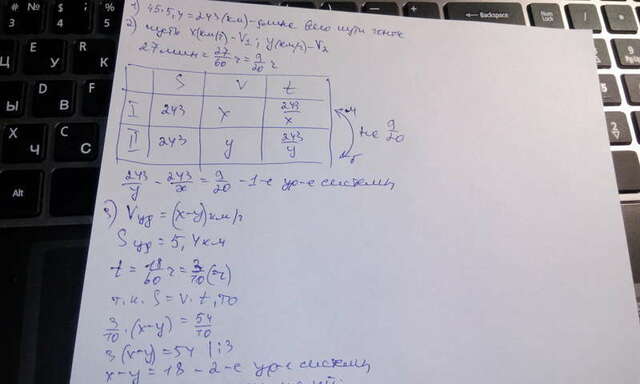 1) 45·5,4=243 (км) - длина всего пути гонок
2) пусть x(км/ч) - V₁; y(км/ч) - V₂
27 мин = 27/60 ч = 9/20 ч
S V t
I 243 x 243/x
II 243 y 243/y
на 9/20
243/y - 243/x = 9/20 - 1-е ур-е системы
3) Vуд = (x-y) км/ч
Sуд = 5,4 км
t = 18/60 ч = 3/10 (ч)
т.к. S = V·t, то
3/10 · (x-y) = 54/10
3(x-y) = 54 |:3
x-y = 18 - 2-е ур-е системы
← Backspace
Num Lock
Alt